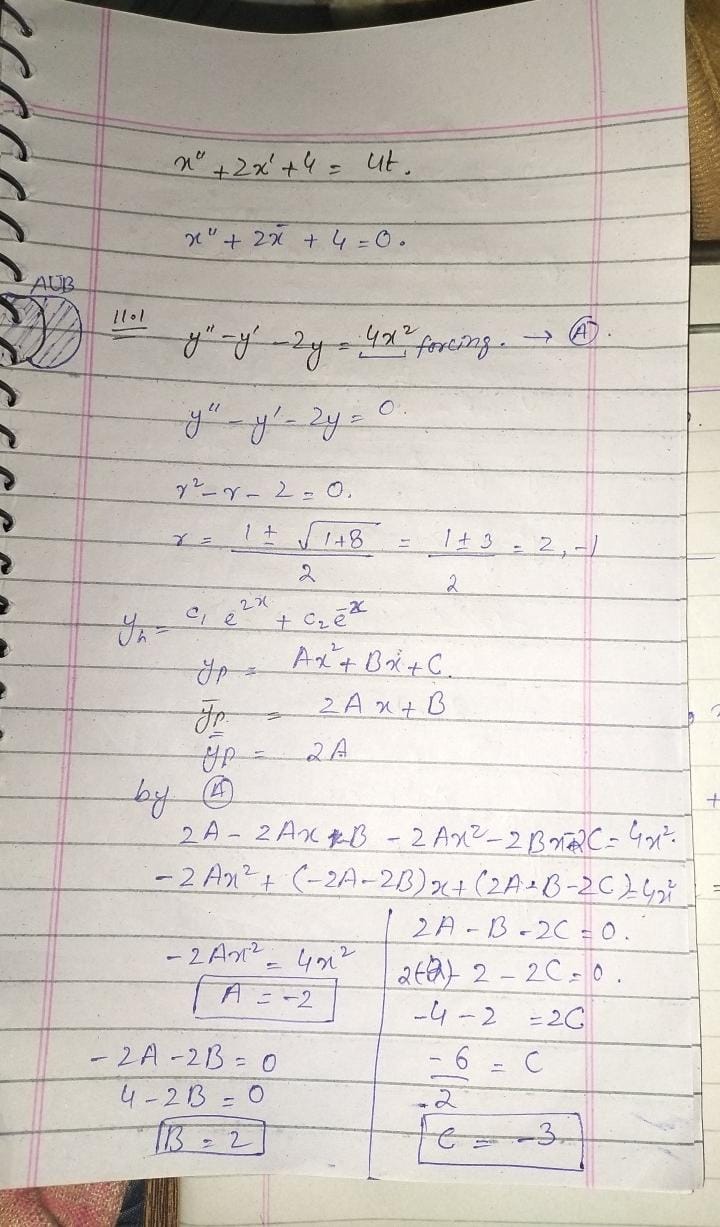 x" + 2x' + 4 = 4t.
x" + 2x̄ + 4 = 0.
AUB
11.1 y" - y' - 2y = 4x² forcing. → Ⓐ.
y" - y' - 2y = 0.
r² - r - 2 = 0.
r = (1 ± √(1+8))/2 = (1 ± 3)/2 = 2, -1
yₕ = c₁ e^(2x) + c₂ e^(-x)
yp = Ax² + Bx + C.
ȳp = 2Ax + B
y̿p = 2A
by Ⓐ
2A - 2Ax - B - 2Ax² - 2Bx - 2C = 4x².
-2Ax² + (-2A-2B)x + (2A-B-2C) = 4x²
-2Ax² = 4x²
A = -2
-2A - 2B = 0
4 - 2B = 0
B = 2
2A - B - 2C = 0.
2(-2) - 2 - 2C = 0.
-4 - 2 = 2C
-6/2 = C
C = -3